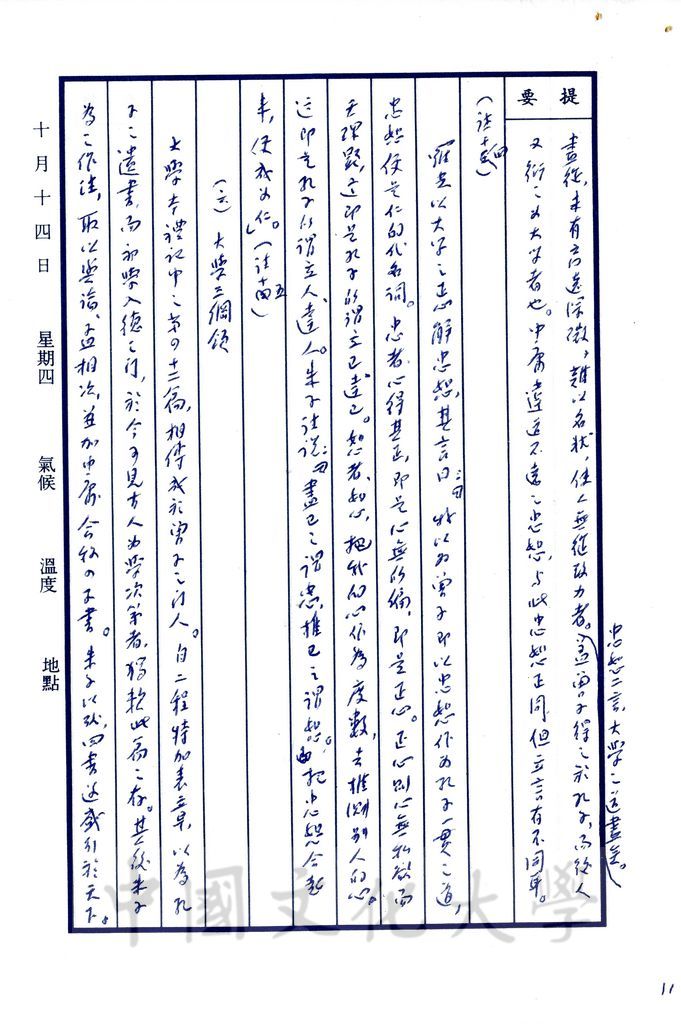 忠恕二言，大學之道盡矣。
提要
盡從，未有高遠深微，難以名狀，使人無從致力者。蓋曾子得之於孔子，而後人
又衍之為大學者也。中庸違道不遠之忠恕，與此忠恕正同，但立言有不同耳。
（註十四）
羅先以大學之正心解忠恕，其言曰：特以為曾子即以忠恕作為孔子一貫之道，
忠恕便是仁的代名詞。忠者心得其正，即是心無所偏，即是正心。正心則心無私欲而
無理障，這即是孔子所謂立己達己。恕者，如心，把我的心作為度數，去推測別人的心。
這即是孔子所謂立人、達人。朱子註說：盡己之謂忠，推己之謂恕。把忠恕合起
來，便成為仁。」（註十五）
（三）大學三綱領
大學本禮記中之第四十二篇，相傳成於曾子之門人。自二程特加表章，以為孔
子之遺書，而初學入德之門，於今可見古人為學次第者，獨賴此篇之存。其後朱子
為之作注，取以與論、孟相次，並加中庸合稱四子書。朱子以後，四書遂盛行於天下。
十月十四日 星期四 氣候 溫度 地點
中國文化大學
11